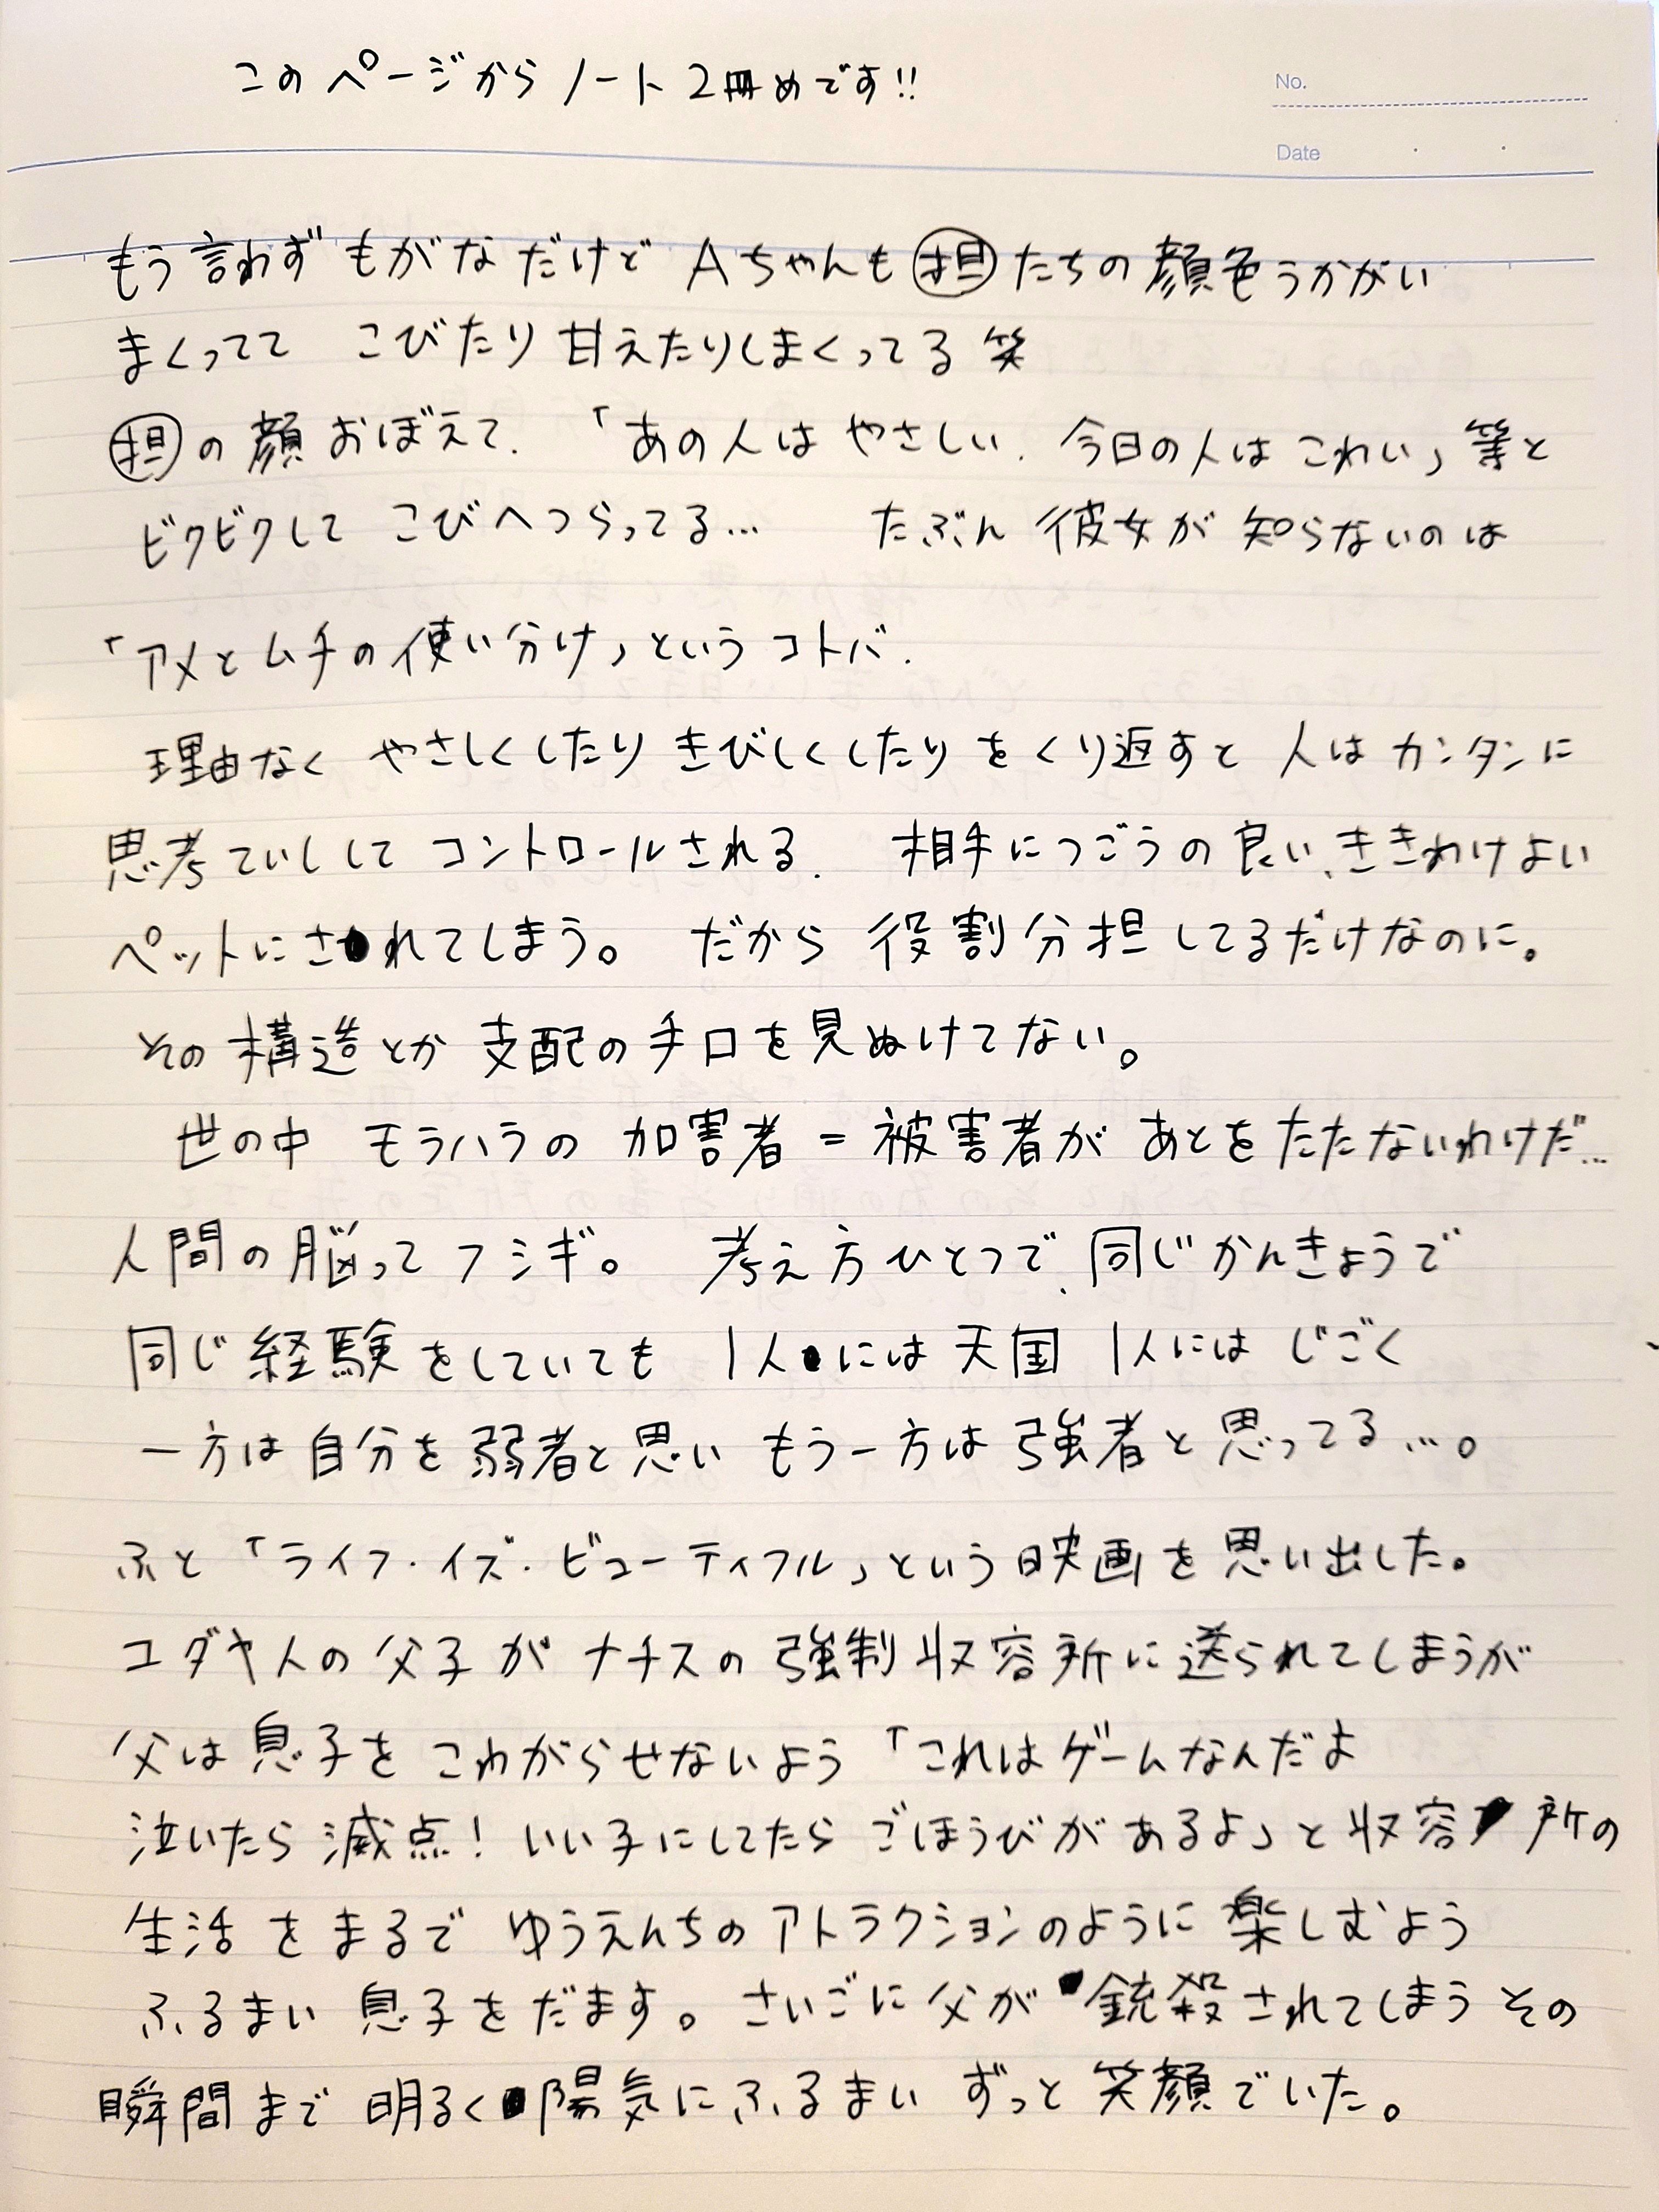 このページからノート2冊めです!!
No.
Date
もう言わずもがなだけど Aちゃんも㊥担たちの顔色うかがい
まくってて こびたり甘えたりしまくってる笑
担の顔おぼえて、「あの人はやさしい、今日の人はこわい」等と
ビクビクして こびへつらってる… たぶん 彼女が 知らないのは
「アメとムチの使い分け」というコトバ.
理由なく やさしくしたり きびしくしたり をくり返すと 人は カンタンに
思考ていしして コントロールされる. 相手につごうの良い、ききわけよい
ペットにされてしまう。 だから 役割分担してるだけなのに。
その構造とか 支配の手口を見ぬけてない。
世の中 モラハラの 加害者=被害者が あとをたたないわけだ…
人間の脳ってフシギ。 考え方ひとつで、同じかんきょうで
同じ経験をしていても 1人には天国 1人には じごく
一方は自分を弱者と思い もう一方は 強者と思ってる…。
ふと「ライフ・イズ・ビューティフル」という映画を思い出した。
ユダヤ人の父子が ナチスの 強制収容所に送られてしまうが
父は息子を こわがらせないよう「これはゲームなんだよ
泣いたら減点! いい子にしてたら ごほうびがあるよ」と収容所の
生活をまるで ゆうえんちのアトラクションのように楽しむよう
ふるまい 息子をだます。さいごに父が 銃殺されてしまうその
瞬間まで 明るく陽気にふるまい ずっと笑顔でいた。